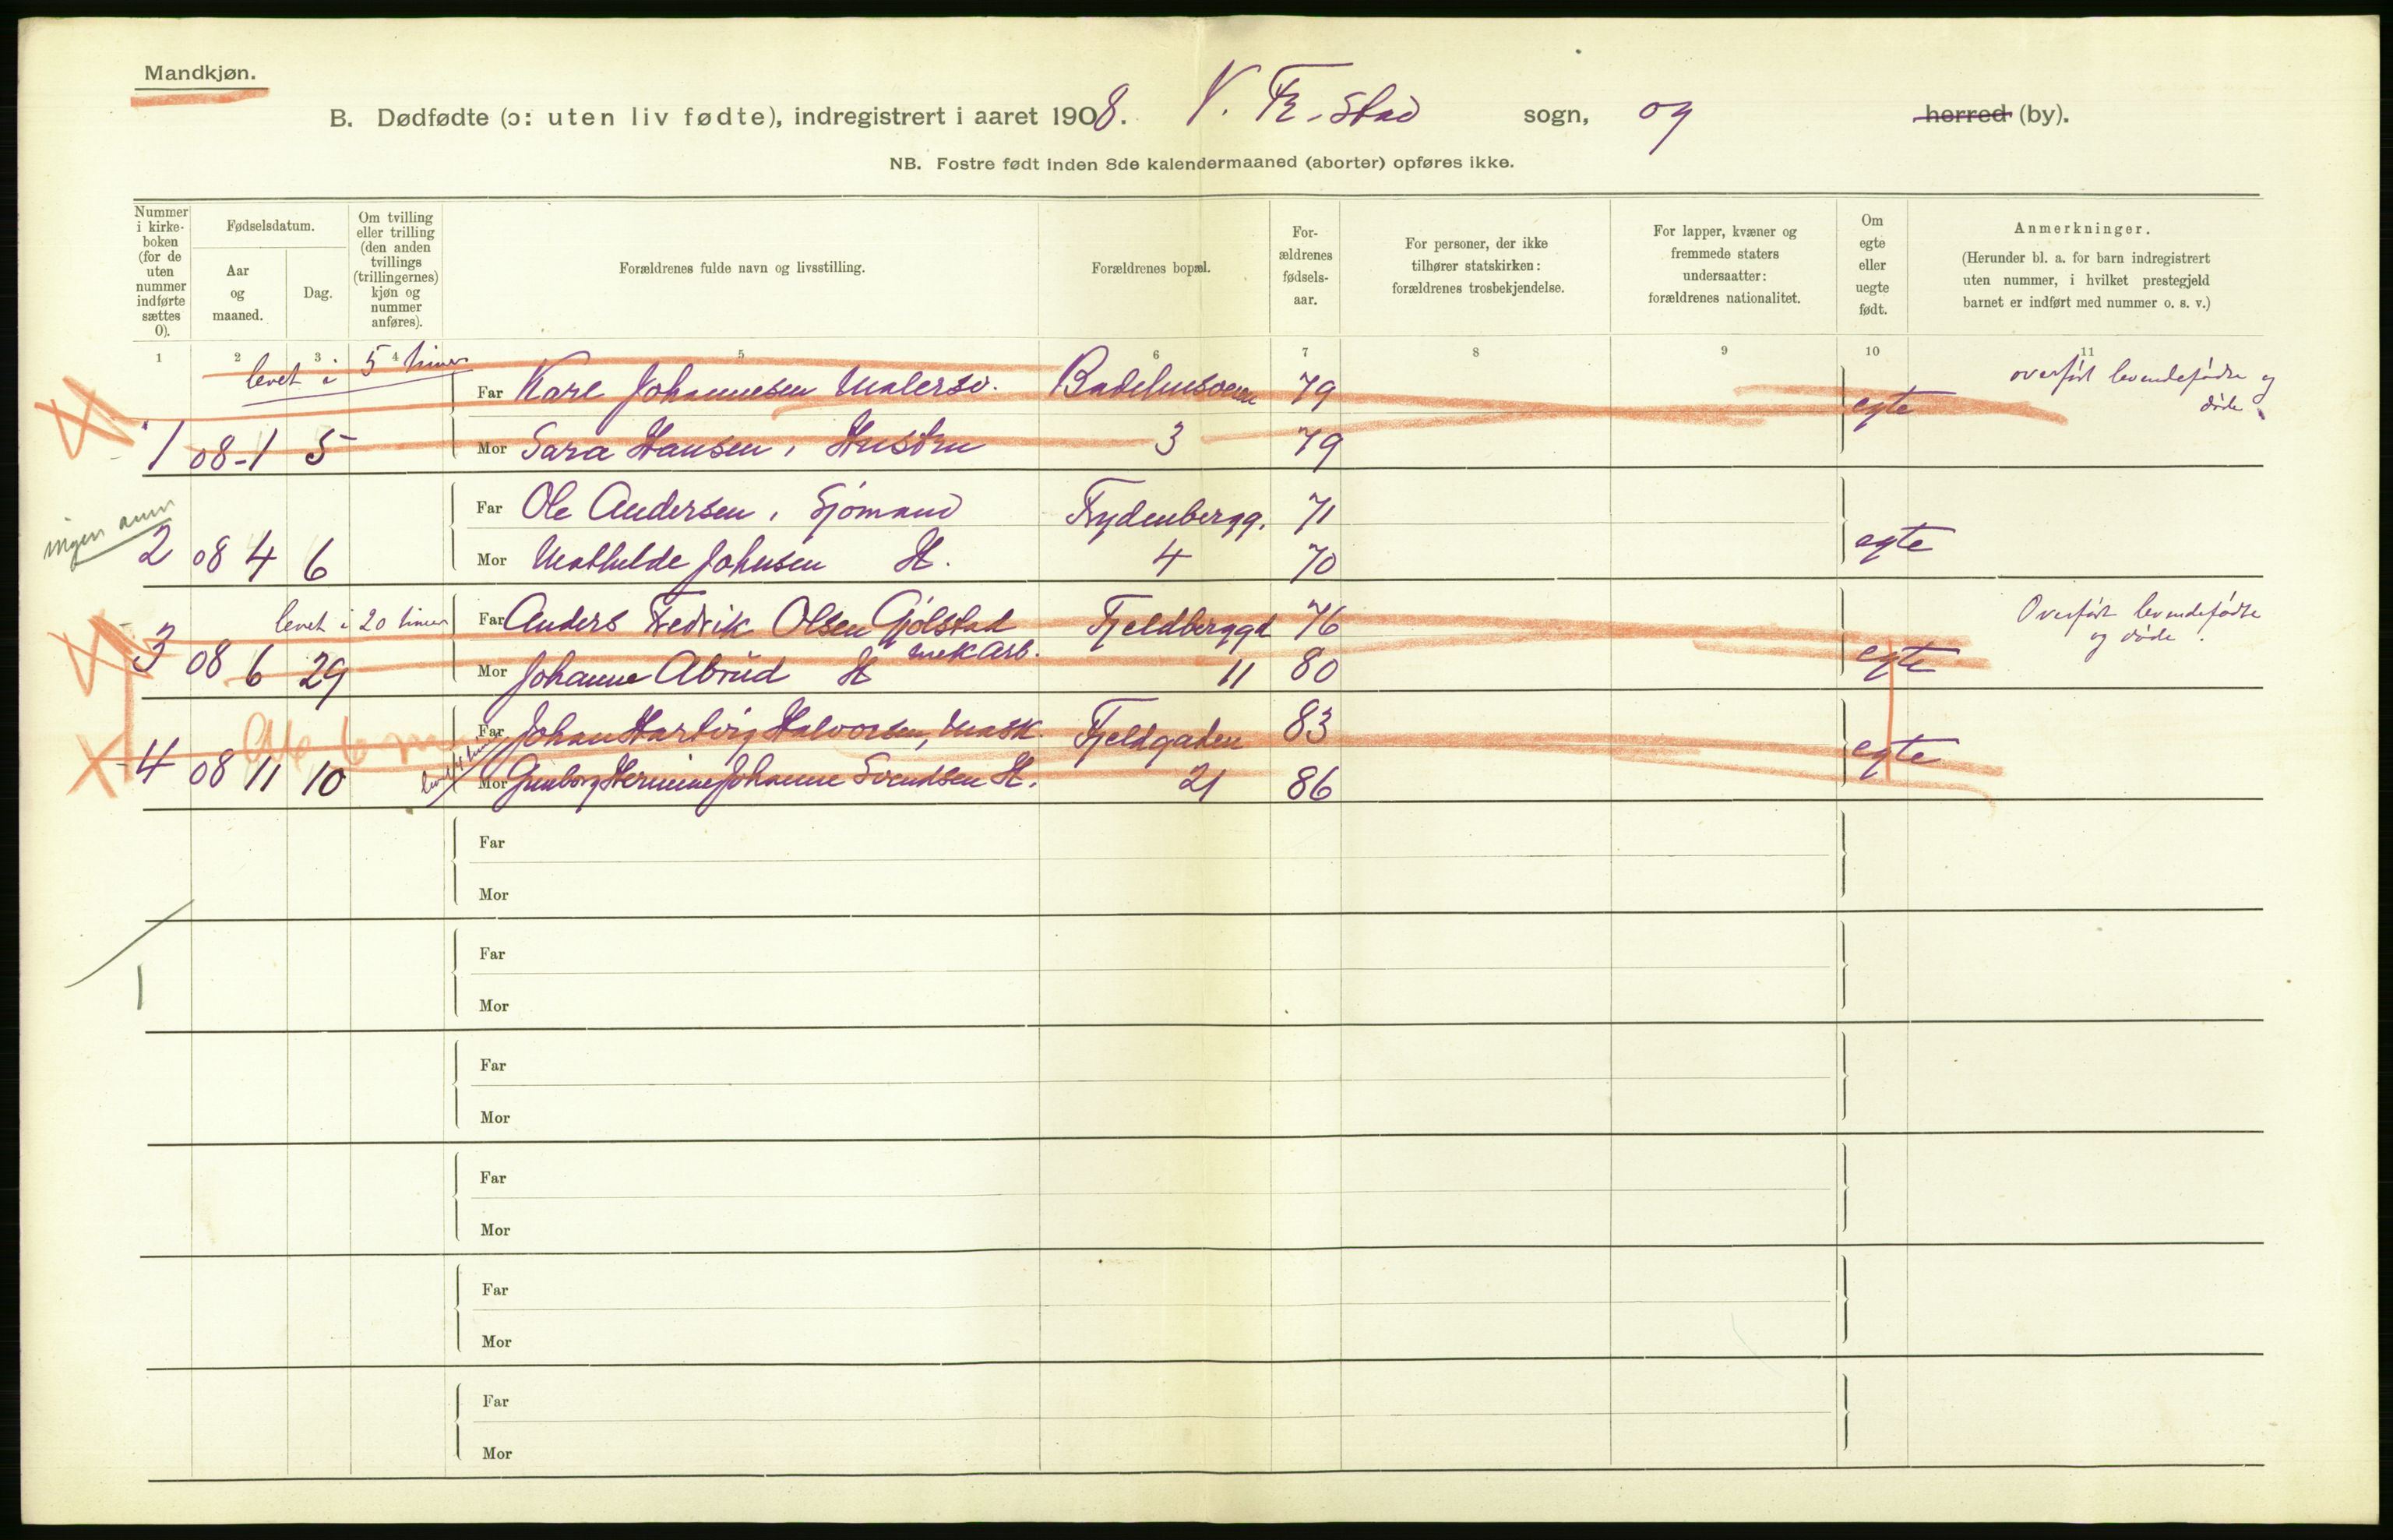 Mandkjøn.
B. Dødfødte (ɔ: uten liv fødte), indregistrert i aaret 1908. V. Fr.stad sogn, og herred (by).
NB. Fostre født inden 8de kalendermaaned (aborter) opføres ikke.
Nummer i kirke-boken (for de uten nummer indførte sættes 0).
Fødselsdatum.
Aar og maaned.
Dag.
Om tvilling eller trilling (den anden tvillings (trillingernes) kjøn og nummer anføres).
Forældrenes fulde navn og livsstilling.
Forældrenes bopæl.
For-ældrenes fødsels-aar.
For personer, der ikke tilhører statskirken: forældrenes trosbekjendelse.
For lapper, kvæner og fremmede staters undersaatter: forældrenes nationalitet.
Om egte eller uegte født.
Anmerkninger.
(Herunder bl. a. for barn indregistrert uten nummer, i hvilket prestegjeld barnet er indført med nummer o. s. v.)
1 2 3 4 5 6 7 8 9 10 11
levet i 5 timer
Far Karl Johannesen Malersv. Badehusveien 79 egte overført levendefødte og døde
1 08-1 5 Mor Sara Hansen, Hustru 3 79
ingen anm
Far Ole Andersen, Sjømand Frydenbergg. 71 egte
2 08 4 6 Mor Mathilde Johnsen H. 4 70
levet i 20 timer
Far Anders Fredrik Olsen Gjølstad mek Arb. Fjeldberggd 76 egte Overført levendefødte og døde.
3 08 6 29 Mor Johanne Abrud H 11 80
Far Johan Hartvig Halvorsen, Mask. Fjeldgaden 83 egte
4 08 11 10 Mor Gunborg Hermine Johanne Svendsen H. 21 86
Far
Mor
Far
Mor
1
Far
Mor
Far
Mor
Far
Mor
Far
Mor